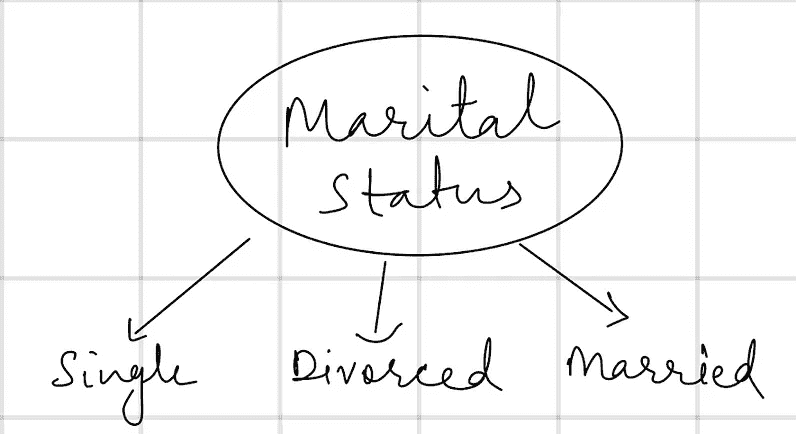 Marital
Status
Single Divorced Married